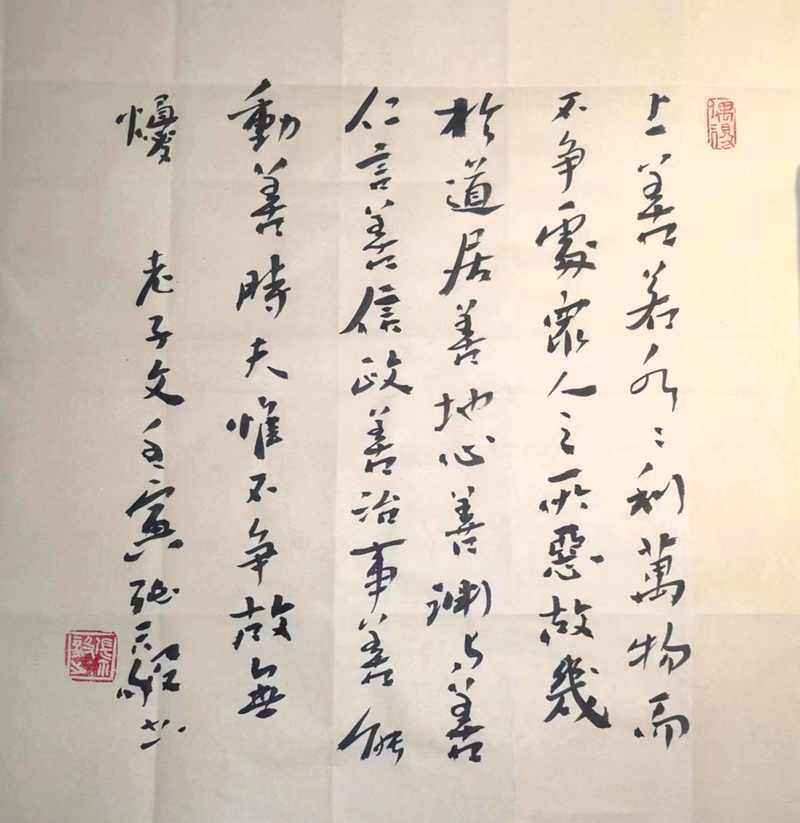 偶得
上善若水〻利萬物而
不争處衆人之所惡故幾
於道居善地心善渊与善
仁言善信政善治事善能
動善時夫惟不争故無
懮 老子文壬寅張